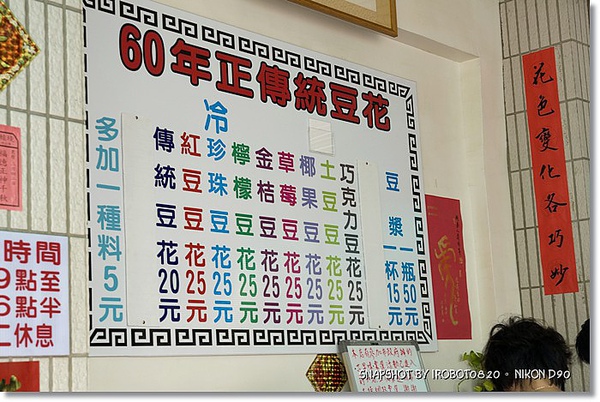 60年正傳統豆花
多加一種料5元
冷
傳統豆花20元
紅豆豆花25元
珍珠豆花25元
檸檬豆花25元
金桔豆花25元
草莓豆花25元
椰果豆花25元
土豆豆花25元
巧克力豆花25元
豆漿
一杯15元
一瓶50元
花色變化各巧妙
時間
9點至
6點半
二休息
SNAPSHOT BY IROBOT0820。NIKON D90